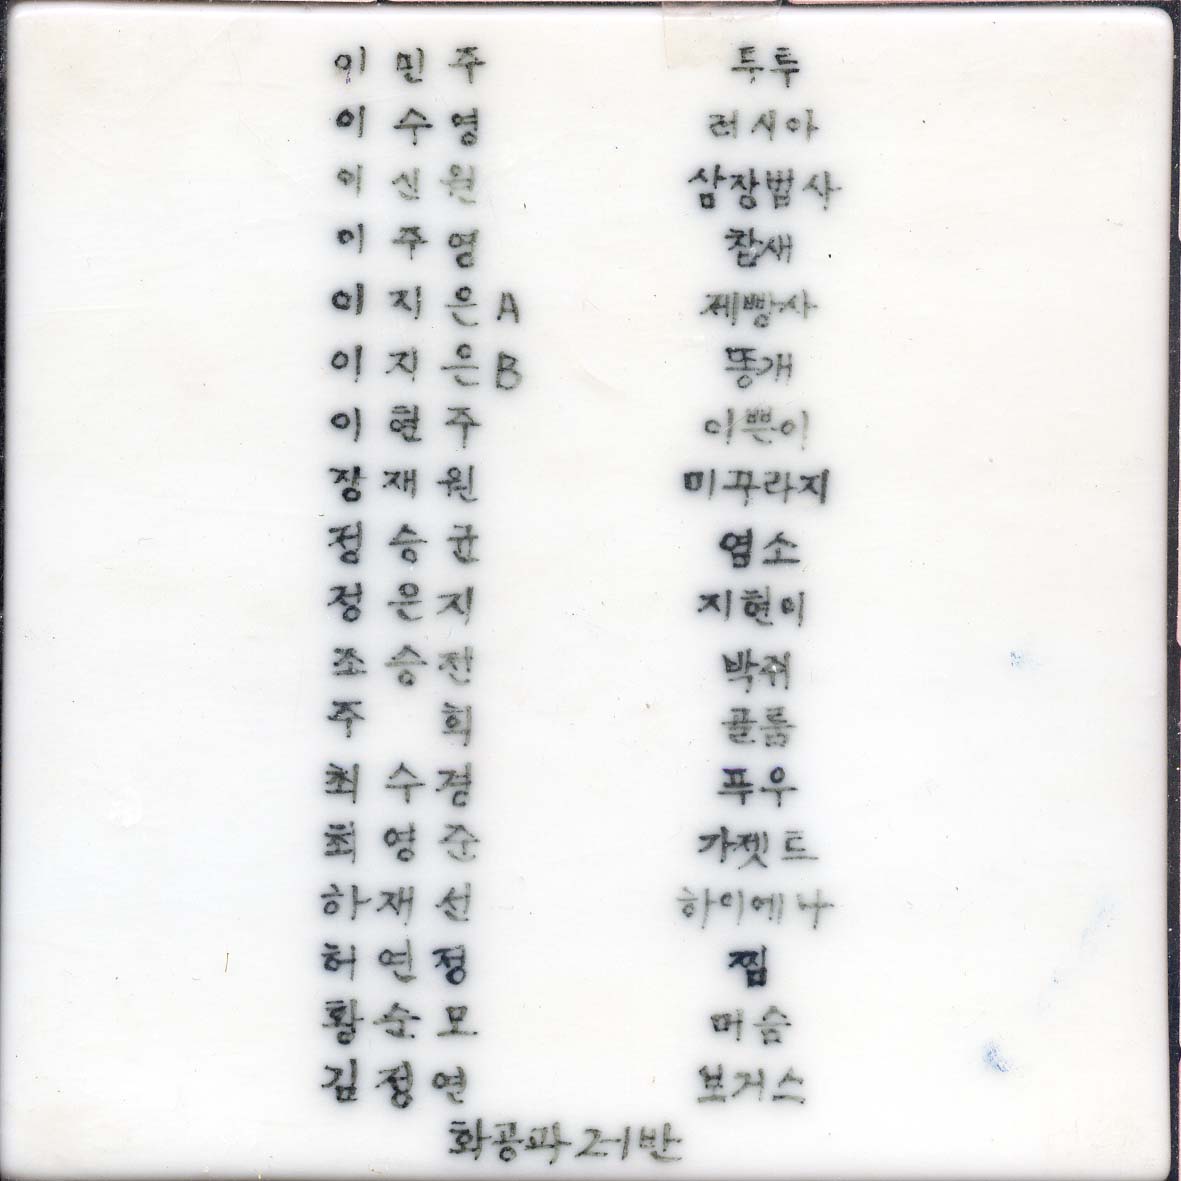 이민주 투투
이수영 러시아
이신원 삼장법사
이주영 참새
이지은A 제빵사
이지은B 똥개
이현주 이쁜이
장재원 미꾸라지
정승균 염소
정은지 지현이
조승전 박쥐
주 희 골룸
최수경 푸우
최영준 가젯트
하재선 하이에나
허연정 찜
황순모 머슴
김정연 보거스
화공과 2-1반